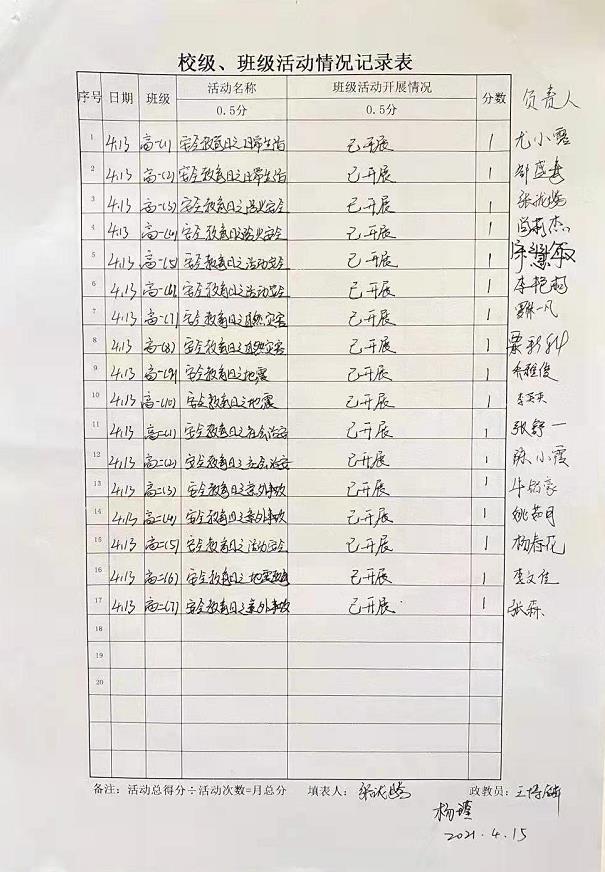 校级、班级活动情况记录表
序号 日期 班级 活动名称 班级活动开展情况 分数 负责人
0.5分 0.5分
1 4.13 高一(1) 安全教育日之日常生活 已开展 1 尤小露
2 4.13 高一(2) 安全教育日之日常生活 已开展 1
3 4.13 高一(3) 安全教育日之消火安全 已开展 1
4 4.13 高一(4) 安全教育日之消火安全 已开展 1
5 4.13 高一(5) 安全教育日之活动安全 已开展 1
6 4.13 高一(6) 安全教育日之活动安全 已开展 1 李艳梅
7 4.13 高一(7) 安全教育日之自然灾害 已开展 1 一凡
8 4.13 高一(8) 安全教育日之自然灾害 已开展 1
9 4.13 高一(9) 安全教育日之地震 已开展 1
10 4.13 高一(10) 安全教育日之地震 已开展 1
11 4.13 高二(1) 安全教育日之社会治安 已开展 1 张舒一
12 4.13 高二(2) 安全教育日之社会治安 已开展 1 陈小霞
13 4.13 高二(3) 安全教育日之意外事故 已开展 1
14 4.13 高二(4) 安全教育日之意外事故 已开展 1 姚茹月
15 4.13 高二(5) 安全教育日之活动安全 已开展 1 杨春花
16 4.13 高二(6) 安全教育日之地震 已开展 1 李文佳
17 4.13 高二(7) 安全教育日之意外事故 已开展 1 张霖
18
19
20
备注：活动总得分÷活动次数=月总分 填表人： 政教员：
杨瑾
2021.4.15